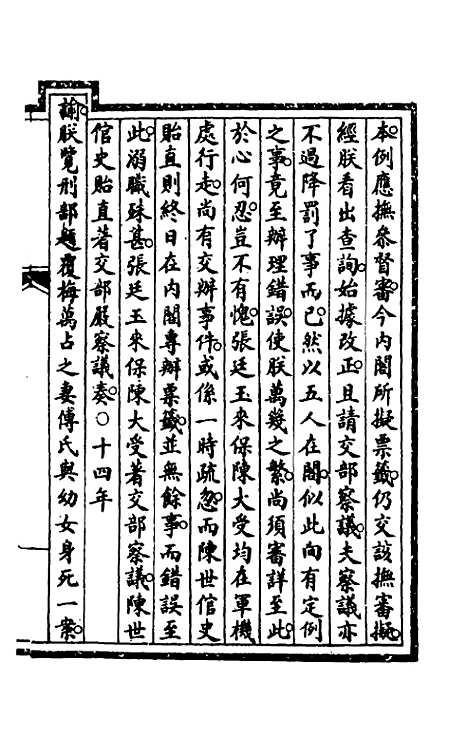 本例應撫叅督審今內閣所擬票籤仍交該撫審擬
經朕看出查詢始據改正且請交部察議夫察議亦
不過降罰了事而已然以五人在閣似此向有定例
之事竟至辦理錯誤使朕萬幾之繁尚須審詳至此
於心何忍豈不有愧張廷玉來保陳大受均在軍機
處行走尚有交辦事件或係一時疏忽而陳世倌史
貽直則終日在內閣專辦票籤並無餘事而錯誤至
此溺職殊甚張廷玉來保陳大受著交部察議陳世
倌史貽直著交部嚴察議奏○十四年
諭朕覽刑部題覆梅萬占之妻傅氏與幼女身死一案